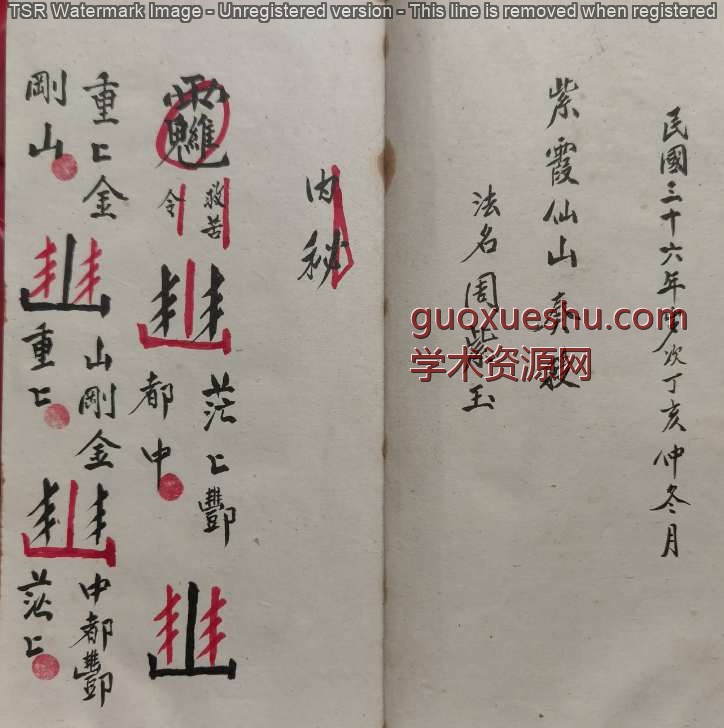 TSR Watermark Image - Unregistered version - This line is removed when registered
民國三十六年歲次丁亥仲冬月
紫霞仙山
法名周紫玉
guoxueshu.com
学术资源网
内秘
救苦
令
茫上酆
都中
重上金
剛山
山剛金
重上
中都酆
茫上